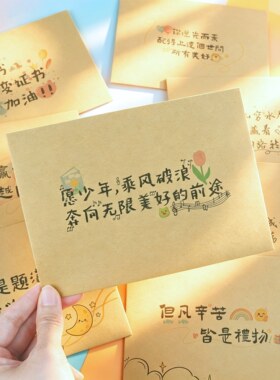 证书
加油!!
配得上这世间
所有美好
愿少年,乘风破浪
奔向无限美好的前途
是题
但凡辛苦
皆是礼物